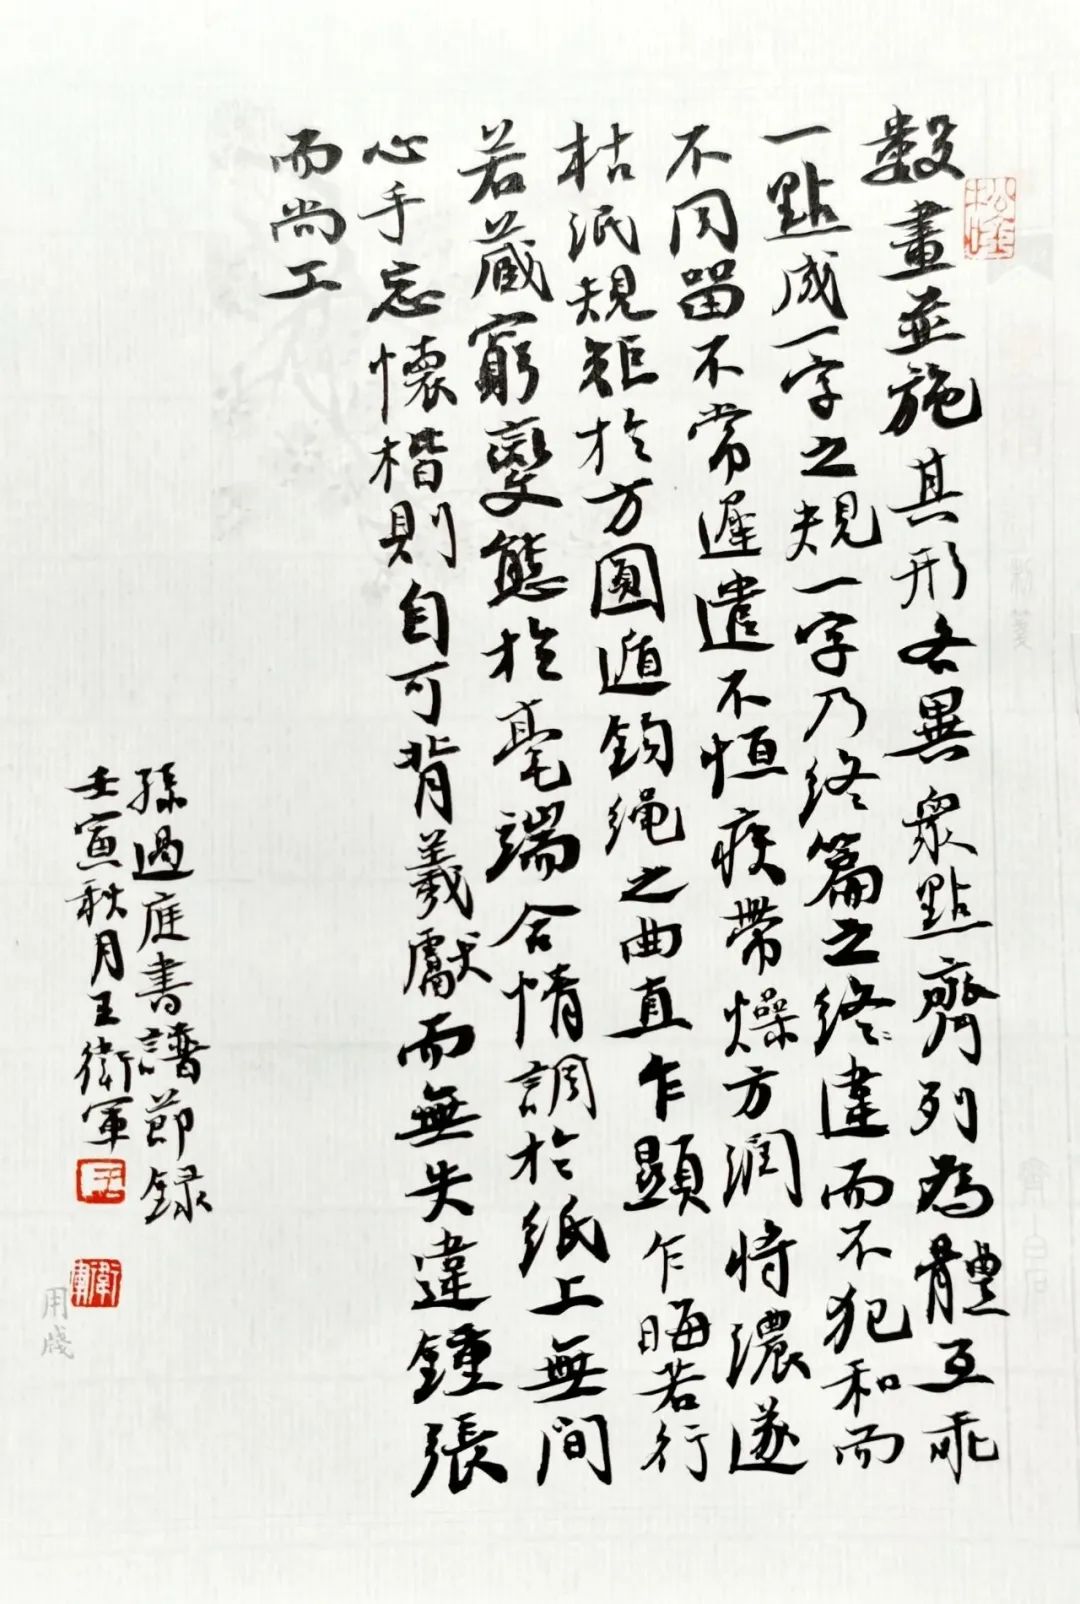 數畫並施其形各異衆點齊列為體互乖
一點成一字之規一字乃終篇之終違而不犯和而
不同留不常遲遣不恒疾帶燥方潤將濃遂
枯泯規矩於方圓遁鈎繩之曲直乍顯乍晦若行
若藏窮變態於毫端合情調於紙上無間
心手忘懷楷則自可背羲獻而無失違鍾張
而尚工
孫過庭書譜節録
壬寅秋月王衛軍
王
衛軍
用牋